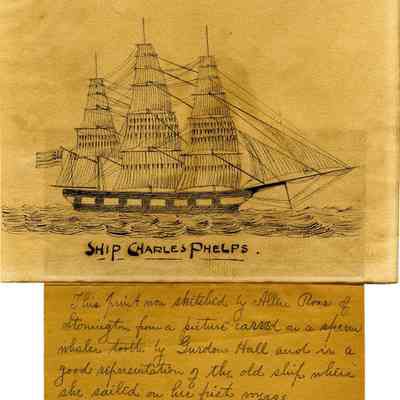 SHIP CHARLES PHELPS.
This print was sketched by Allen Ross of
Stonington from a picture carved on a sperm
whales tooth by Gurdon Hall and is a
good representation of the old ship where
she sailed on her first voyage